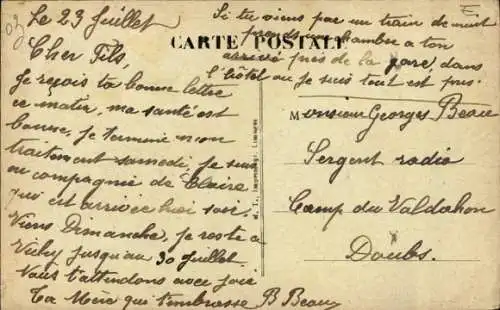 Le 23 Juillet
Cher Fils,
Je reçois ta bonne lettre
ce matin, ma santé est
bonne, je termine mon
traitement samedi, je suis
en compagnie de Claire
qui est arrivée hier soir.
Viens Dimanche, je reste à
Vichy jusqu'au 30 Juillet.
Nous t'attendons avec joie
Ta Mère qui t'embrasse B Beau
Si tu viens par un train de nuit
prends une chambre a ton
CARTE POSTALE
arrivé près de la gare, dans
l'hôtel ou je suis tout est pris.
Monsieur Georges Beau
Sergent radio
Camp du Valdahon
Doubs.